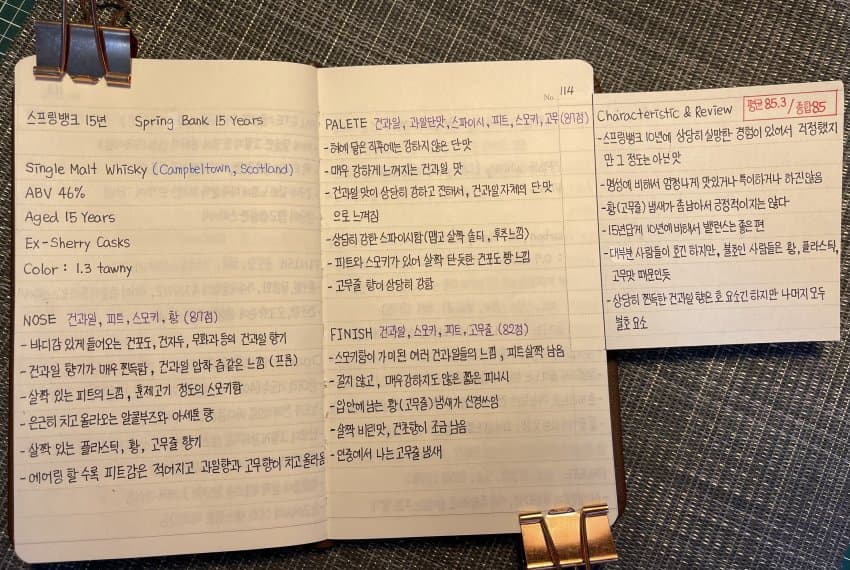 스프링뱅크 15년 Spring Bank 15 Years
Single Malt Whisky (Campbeltown, Scotland)
ABV 46%
Aged 15 Years
Ex-Sherry Casks
Color : 1.3 tawny
NOSE 건과일, 피트, 스모키, 황 (87점)
- 바디감 있게 들어오는 건포도, 건자두, 무화과 등의 건과일 향기
- 건과일 향기가 매우 쫀득함, 건과일 압착 즙같은 느낌 (프룬)
- 살짝 있는 피트의 느낌, 훈제고기 정도의 스모키함
- 은근히 치고 올라오는 알콜부즈와 아세톤 향
- 살짝 있는 플라스틱, 황, 고무줄 향기
- 에어링 할 수록 피트감은 적어지고 과일향과 고무향이 치고 올라옴
No. 114
PALETE 건과일, 과일단맛, 스파이시, 피트, 스모키, 고무 (87점)
- 혀에 닿은 직후에는 강하지 않은 단 맛
- 매우 강하게 느껴지는 건과일 맛
- 건과일 맛이 상당히 강하고 진해서, 건과일 자체의 단 맛
으로 느껴짐
- 상당히 강한 스파이시함 (맵고 살짝 솔티, 후추느낌)
- 피트와 스모키가 있어 살짝 탄듯한 건포도 빵 느낌
- 고무줄 향이 상당히 강함
FINISH 건과일, 스모키, 피트, 고무줄 (82점)
- 스모키함이 가미된 여러 건과일들의 느낌, 피트살짝 남음
- 길지 않고, 매우강하지도 않은 짧은 피니시
- 입안에 남는 황(고무줄) 냄새가 신경쓰임
- 살짝 비린맛, 건초향이 조금 남음
- 빈잔에서 나는 고무줄 냄새
Characteristic & Review 평균 85.3 / 종합 85
- 스프링뱅크 10년에 상당히 실망한 경험이 있어서 걱정했지
만 그 정도는 아닌 맛
- 명성에 비해서 엄청나게 맛있거나 특이하거나 하진 않음
- 황(고무줄) 냄새가 좀 남아서 긍정적이지는 않다
- 15년답게 10년에 비해서 밸런스는 좋은 편
- 대부분 사람들이 호긴 하지만, 불호인 사람들은 황, 플라스틱,
고무맛 때문인듯
- 상당히 쫀득한 건과일 향은 호 요소긴 하지만 나머지 모두
불호 요소